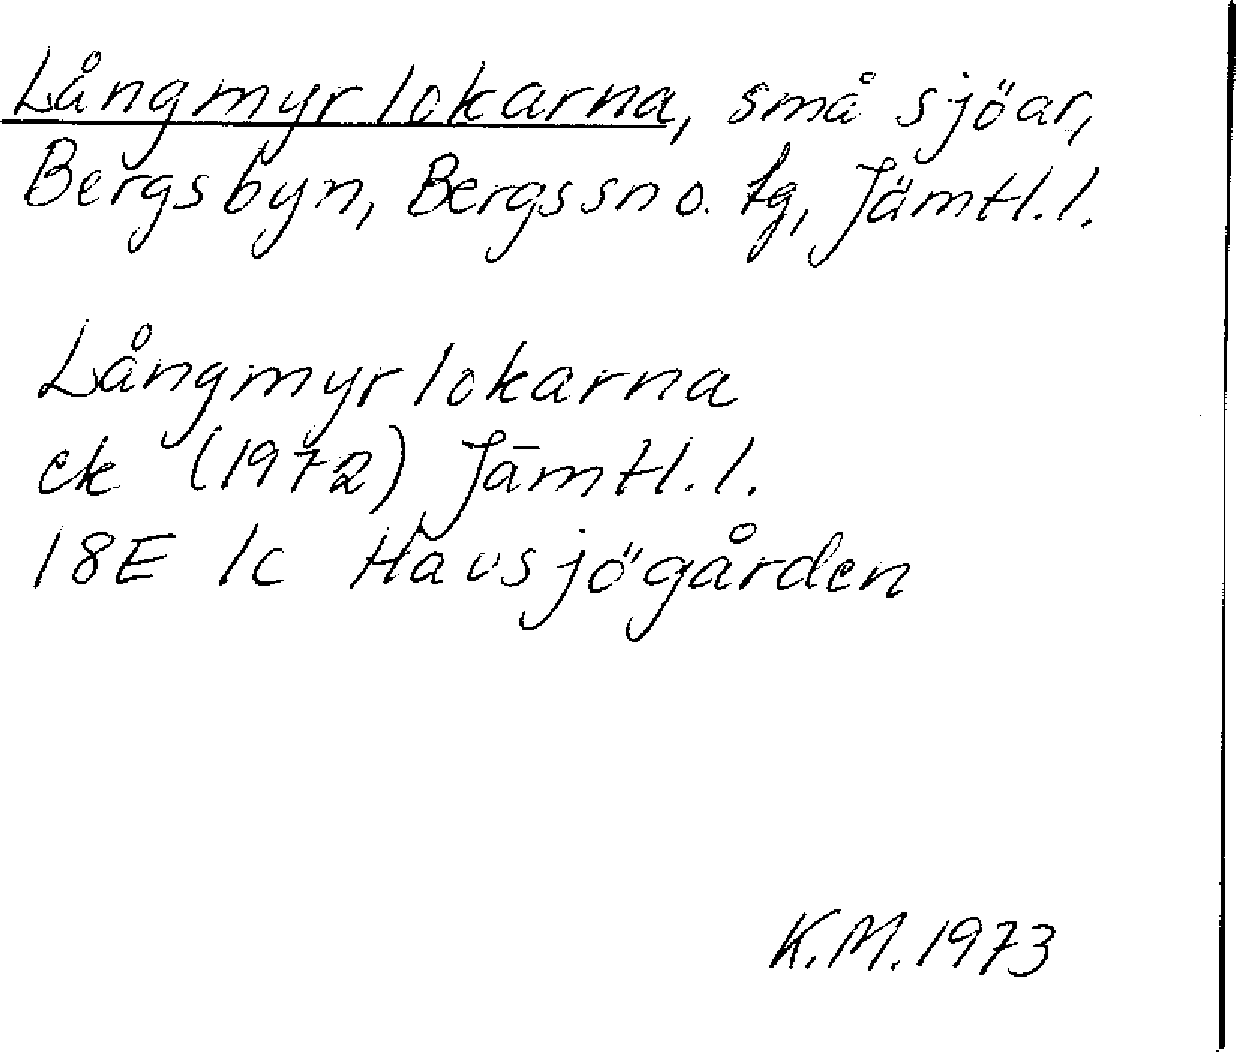 Långmyrlokarna, små sjöar,
Bergsbyn, Bergssn o. tg, Jämtl.l.
Långmyrlokarna
ek (1972) Jämtl.l.
18E 1c Havsjögården
K.M. 1973